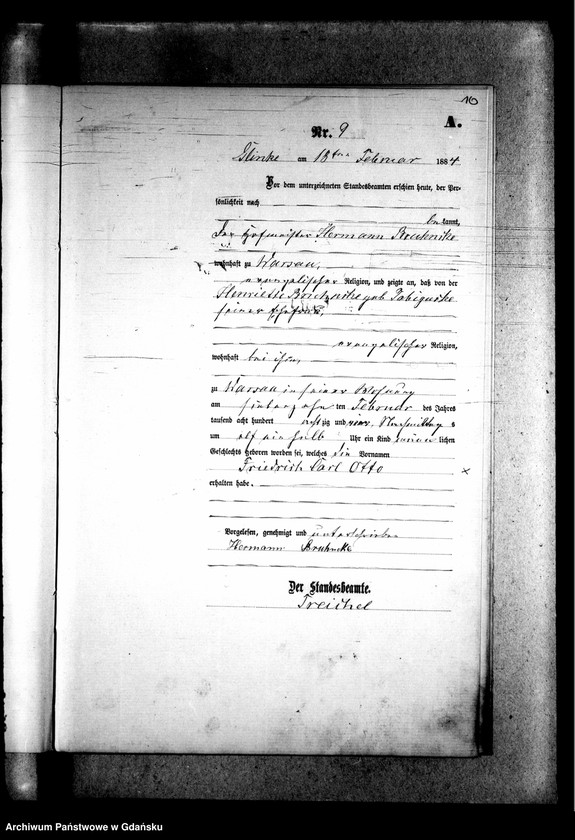 10
A.
Nr. 9
Glinke am 18ten Februar 1884
Vor dem unterzeichneten Standesbeamten erschien heute, der Per-
sönlichkeit nach
bekannt,
Der Hofmeister Hermann Bruhnke
wohnhaft zu Warsau,
evangelischer Religion, und zeigte an, daß von der
Henriette geb
seiner Ehefrau,
evangelischer Religion,
wohnhaft bei ihm,
zu Warsau in seiner Wohnung
am siebenzehn ten Februar des Jahres
tausend acht hundert acht zig und vier, Vormittags
um elf ein halb Uhr ein Kind männ lichen
Geschlechts geboren worden sei, welches die Vornamen
Friedrich Carl Otto
erhalten habe.
Vorgelesen, genehmigt und unterschrieben
Hermann Bruhnke
Der Standesbeamte.
Treichel
Archiwum Państwowe w Gdańsku